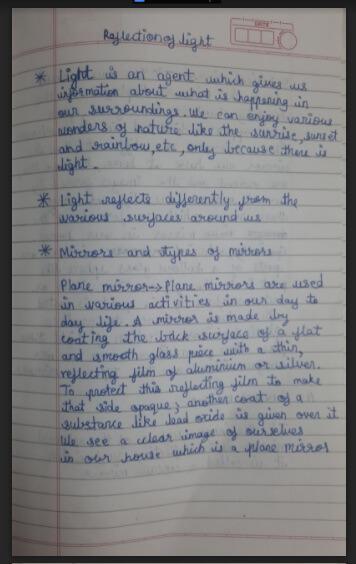 Reflection of light
* Light is an agent which gives us
information about what is happening in
our surroundings. We can enjoy various
wonders of nature like the sunrise, sunset
and rainbow, etc, only because there is
light.
* Light reflects differently from the
various surfaces around us
* Mirrors and types of mirrors
Plane mirror→Plane mirrors are used
in various activities in our day to
day life. A mirror is made by
coating the back surface of a flat
and smooth glass piece with a thin,
reflecting film of aluminium or silver.
To protect this reflecting film to make
that side opaque; another coat of a
substance like lead oxide is given over it
We see a clear image of ourselves
in our house which is a plane mirror